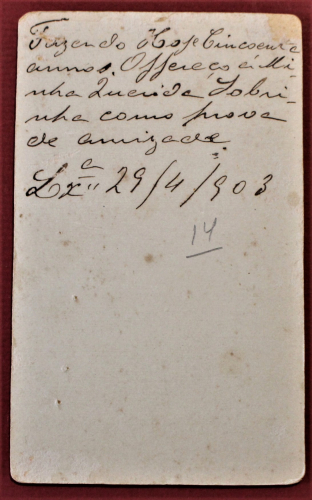 Fazendo Hoje Cincoenta
annos. Offereço á Mi-
nha Querida Sobri-
nha como prova
de amizade.
Lxª 29/4/903
14